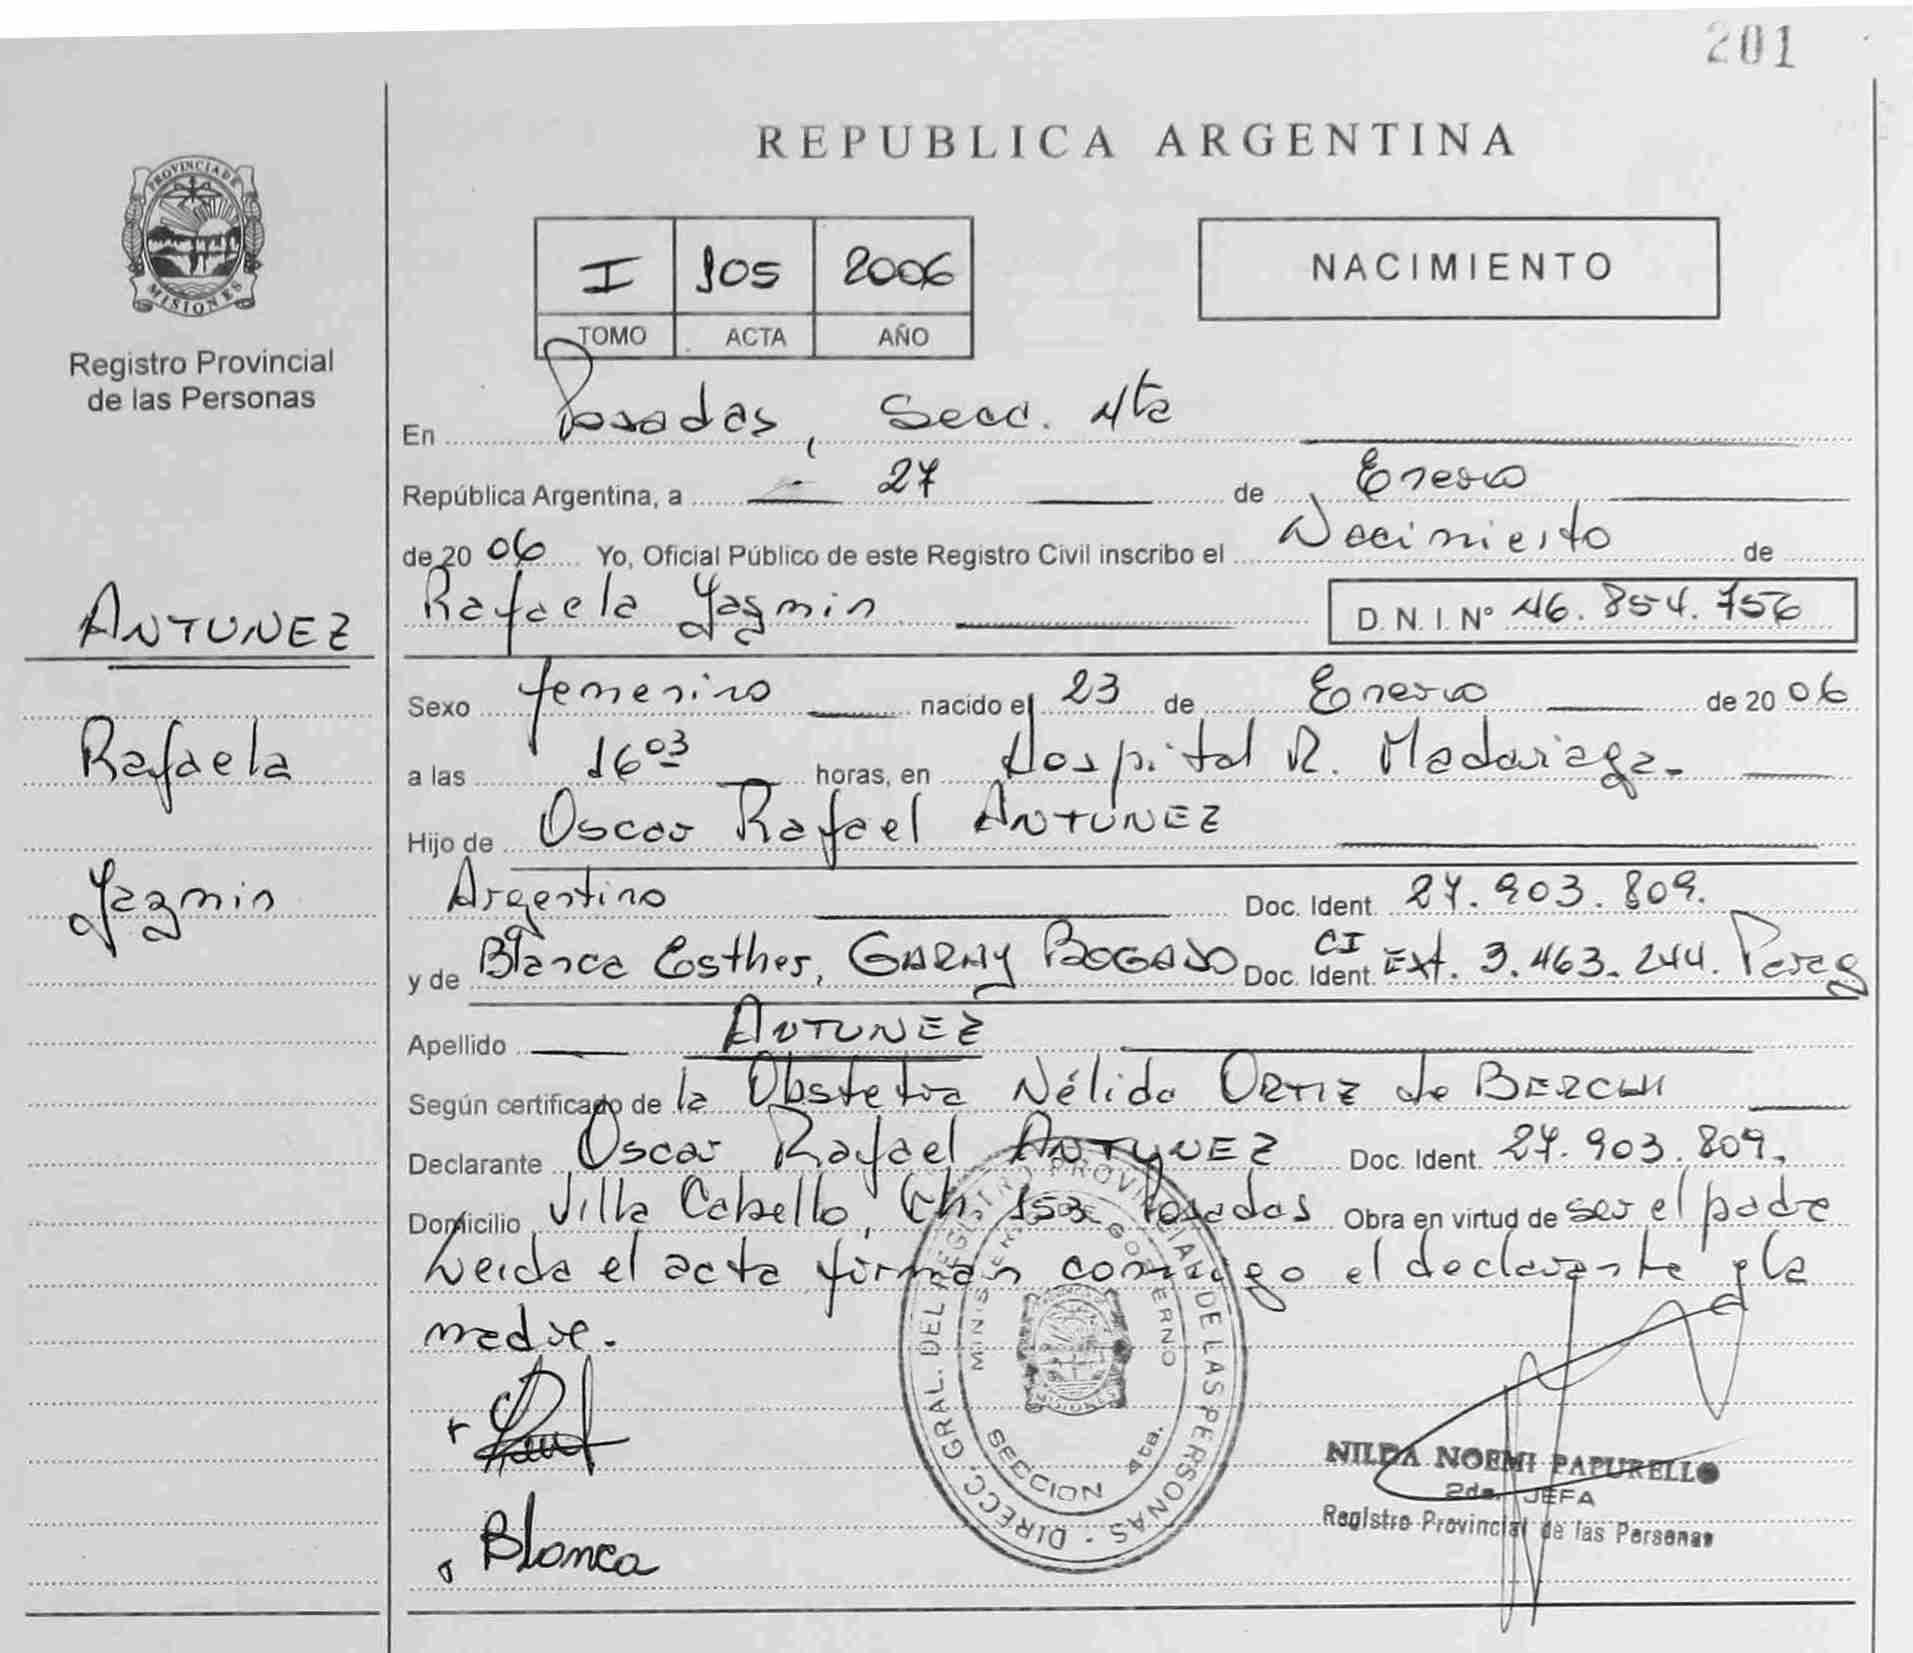 201
REPUBLICA ARGENTINA
PROVINCIA DE
MISIONES
Registro Provincial
de las Personas
I 105 2006
TOMO ACTA AÑO
NACIMIENTO
En Posadas, Secc. 4ta
República Argentina, a 27 de Enero
de 2006 Yo, Oficial Público de este Registro Civil inscribo el Nacimiento de
Rafaela Yazmin D.N.I. Nº 46.854.756
ANTUNEZ
Rafaela
Yazmin
Sexo femenino nacido el 23 de Enero de 2006
a las 16 03 horas, en Hospital R. Madariaga.
Hijo de Oscar Rafael ANTUNEZ
Argentino Doc. Ident. 27.903.809.
y de Blanca Esther, GARAY BOGADO CI Doc. Ident. Ext. 3.463.244.
Apellido ANTUNEZ
Según certificado de la Obstetra Nélida ORTIZ de BERCHI
Declarante Oscar Rafael ANTUNEZ Doc. Ident. 27.903.809.
Domicilio Villa Cabello, Ch. 153 Posadas Obra en virtud de ser el padre
Leida el acta firman conmigo el declarante y la
madre.
Blanca
DIRECC. GRAL. DEL REGISTRO PROVINCIAL DE LAS PERSONAS
MINISTERIO DE GOBIERNO
MISIONES
SECCION 4ta.
NILDA NOEMI PAPURELLO
2da. JEFA
Registro Provincial de las Personas